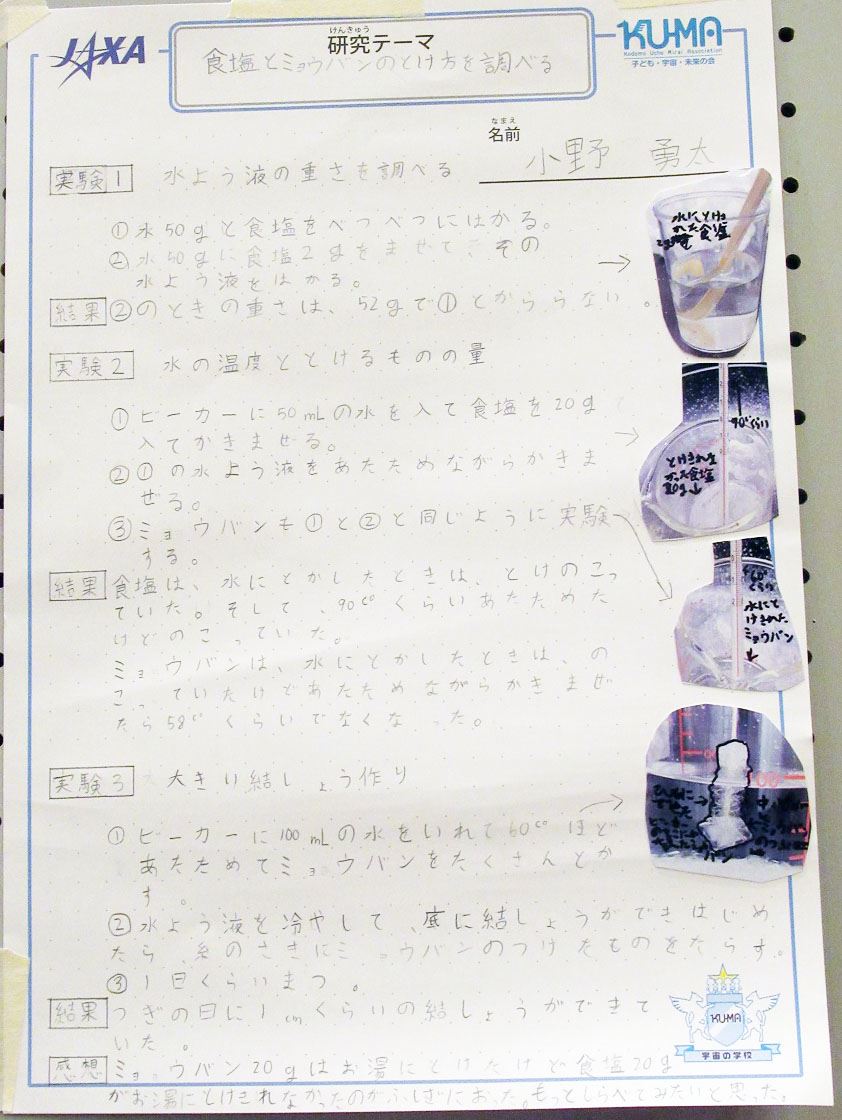 JAXA
けんきゅう
研究テーマ
KU-MA
Kodomo Uchu Mirai Association
子ども・宇宙・未来の会
食塩とミョウバンのとけ方を調べる
なまえ
名前
小野 勇太
実験1 水よう液の重さを調べる
①水50gと食塩をべつべつにはかる。
②水50gに食塩2gをまぜて、その
水よう液をはかる。
結果 ②のときの重さは、52gで①とかららない。
水にとけ
かた食塩
実験2 水の温度ととけるものの量
①ビーカーに50mLの水を入て食塩を20g
入てかきまぜる。
②①の水よう液をあたためながらかきま
ぜる。
③ミョウバンも①と②と同じように実験
する。
90°くらい
とけきれな
かった食塩
結果 食塩は、水にとかしたときは、とけのこっ
ていた。そして、90C°くらいあたためた
けどのこっていた。
ミョウバンは、水にとかしたときは、の
こっていたけどあたためながらかきまぜ
たら58C°くらいでなくなった。
60°
くらい
水にと
けきれた
ミョウバン
実験3 大きい結しょう作り
①ビーカーに100mLの水をいれて60C°ほど
あたためてミョウバンをたくさんとか
す。
②水よう液を冷やして、底に結しょうができはじめ
たら、糸のさきにミョウバンのつけたものをたらす。
③1日くらいまつ。
結果 つぎの日に1cmくらいの結しょうができて
いた。
KU-MA
宇宙の学校
感想 ミョウバン20gはお湯にとけたけど食塩20g
がお湯にとけきれなかったのがふしぎにおった。もっとしらべてみたいと思った。